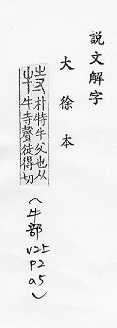 說文解字
大徐本
特
朴特牛父也从
牛寺聲徒得切
(牛部
V25
P2
a5)